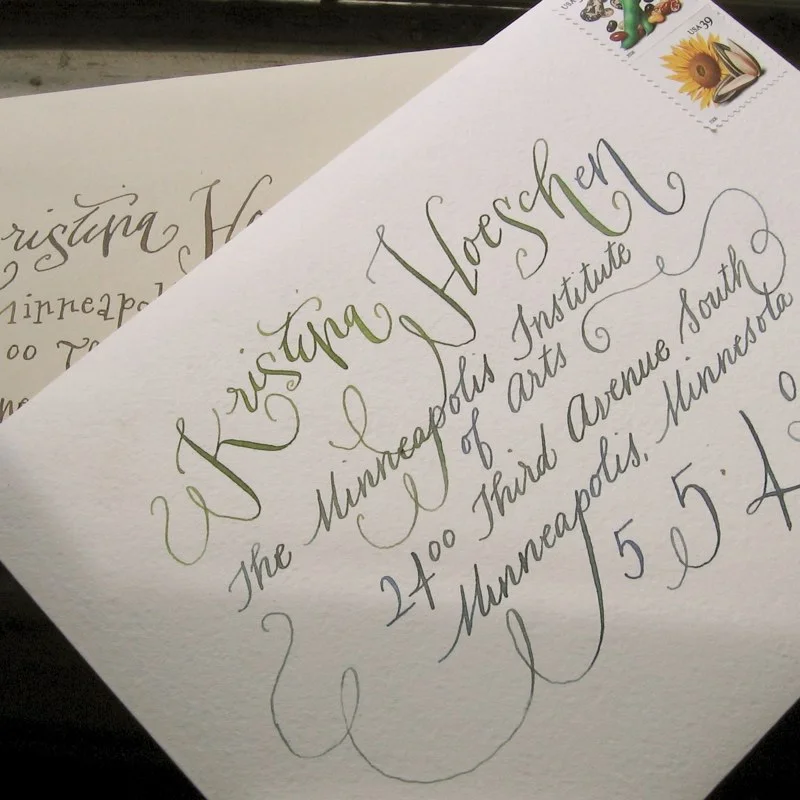 USA
USA 39
Kristina Hoeschen
The Minneapolis Institute
of Arts
2400 Third Avenue South
Minneapolis, Minnesota
5 5 4 0
ristina Ho
Minneapol
00 T